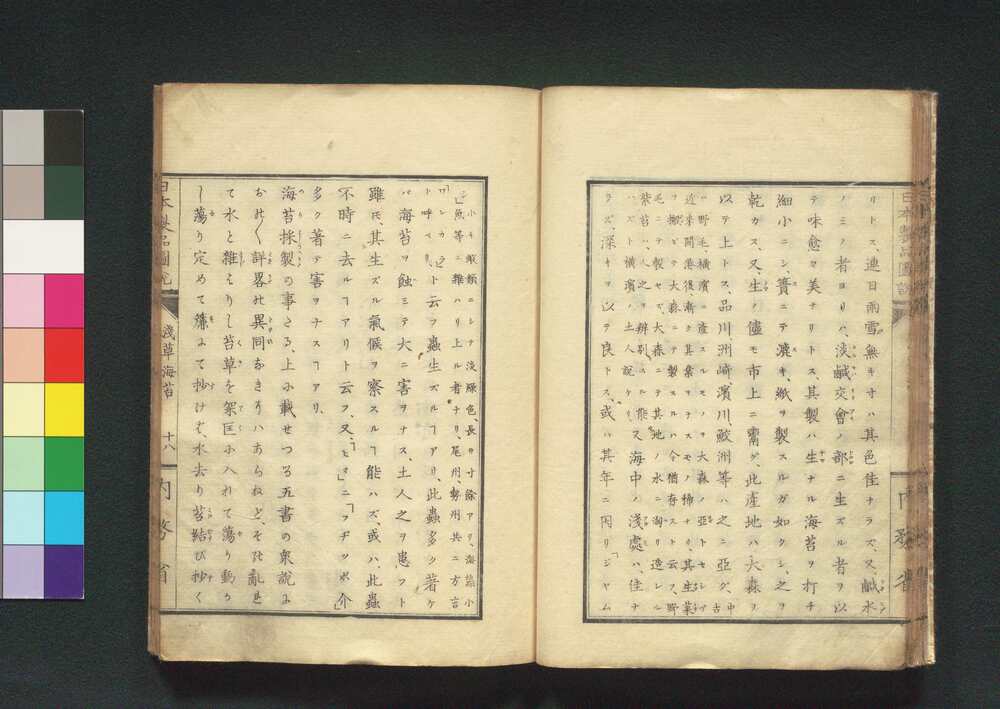 リトス、連日雨雪無キ寸ハ其色佳ナラズ、又鹹水
ノミノ者ヨリハ、淡鹹交會ノ部ニ生ズル者ヲ以
テ味愈々美ナリトス、其製ハ生ナル海苔ヲ打チ
細小ニシ、簀ニテ漉キ、紙ヲ製スルガ如クシ、之ヲ
乾カス、又生ノ儘モ市上ニ鬻グ、此産地ハ大森ヲ
以テ上トス、品川、洲崎、濱川、鮫洲等ハ之ニ亞グ、中古
ハ野毛、横濱ニ産スルモノヲ大森ノ亞トセシガ
近来開港後漸ク其業ヲナスモノ稀ナリ、其生葉
ヲ擷ビテ大森ニテ製スルハ今猶存スト云フ、野
毛ニテ製セズ、大森ニテ其地ノ水ニ淘リ造レル
紫苔ハ、人之ヲ辨別スル能ハズト横濱ノ土人説ケリ、
又海中ノ淺處ハ、佳ナ
ラズ、深キヲ以テ良トス、或ハ其年ニ因リ「ジャム
小キ蝦類ニシテ淡緑色、長サ寸餘アリ、海苔小
魚等ニ雜ハリ上ル者ナリ、尾州、勢州共ニ方言
ト呼ベリ、
ト云フ蟲生ズルヿアリ、此蟲多ク著ケ
バ海苔ヲ蝕ミテ大ニ害ヲナス、土人之ヲ患フト
雖モ其生ズル氣候ヲ察スルヿ能ハズ、或ハ此蟲
不時ニ去ルヿアリト云フ、又「ヒマ」ニ「ヲヂツボ介」
多ク著テ害ヲナスヿアリ、
海苔採製の事たる、上に載せつる五書の衆説に
おのく詳畧の異同なきにハあらねど、その亂
て水と雜はりし苔草を架匡に入れて蕩り動か
し蕩り定めて簾にて抄けば、水去り苔結び抄く
日本製品圖説
淺草海苔
十八
内務省